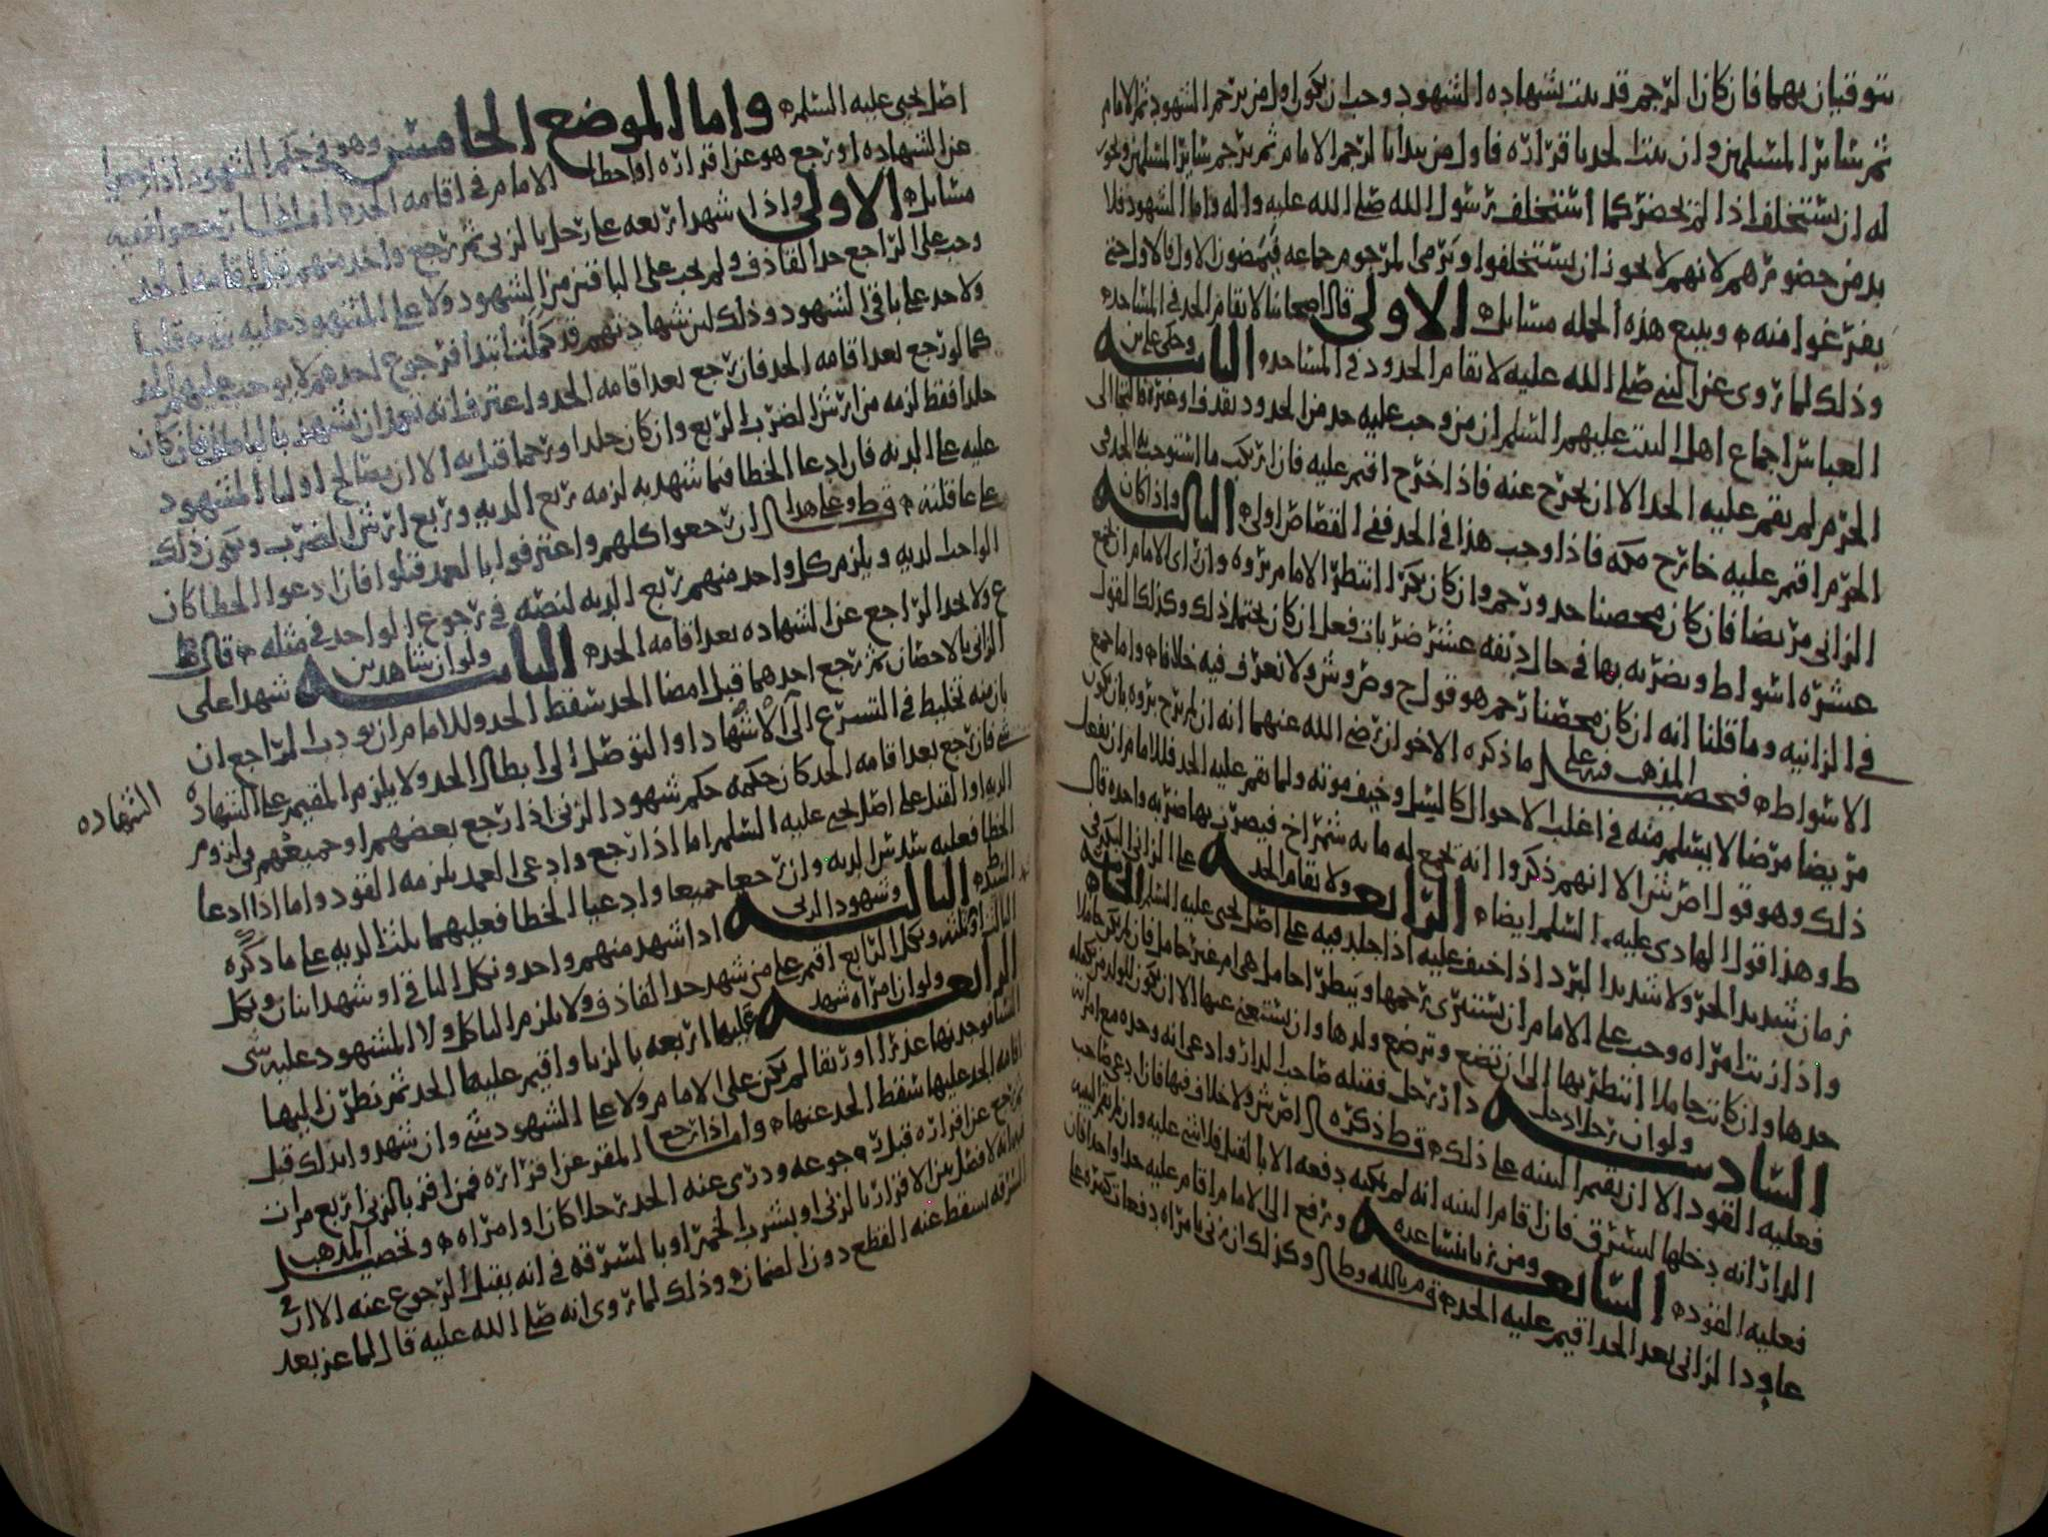 يتوقيان بهما فان كان الرجم قد ثبت بشهاده الشهود وجب ان يكون اول من يرجم الشهود ثم الامام
ثم سائر المسلمين وان ثبت الحد باقراره فاول من يبدا بالرجم الامام ثم يرجم سائر المسلمين ويجوز
له ان يستخلف اذا لم يحضر كما استخلف رسول الله صلى الله عليه واله واما الشهود فلا
بد من حضورهم لانهم لا يجوز ان يستخلفوا ويرمى المرجوم جماعه فيمضون الاول فالاول حتى
يفرغوا منه ويتبع هذه الجمله مسايل الاولى قال اصحابنا لا يقام الحد في المساجد
وذلك لما روي عن النبي صلى الله عليه لا تقام الحدود في المساجد الثانيه وحكى علي بن
العباس اجماع اهل البيت عليهم السلم ان من وجب عليه حد من الحدود بقذف او غيره فالتجا الى
الحرم لم يقم عليه الحد الا ان يخرج عنه فاذا خرج اقيم عليه فان ارتكب ما استوجب به الحد في
الحرم اقيم عليه خارج مكه فاذا وجب هذا في الحد ففي القصاص اولى الثالثه واذا كان
الزاني مريضا فان كان محصنا حد ورجم وان كان بكرا انتظر الامام بروه وان راى الامام ان يجمع
عشره اسواط ويضربه بها في حال دنفه عشر ضربات فعل ان كان يحتمل ذلك وكذلك القول
في الزانيه وما قلنا انه ان كان محصنا رجم هو قول ح وص وش ولا نعرف فيه خلافا واما جمع
الاسواط فتحصيل المذهب فيه على ما ذكره الاخوان رضي الله عنهما انه ان لم يرج بروه بان يكون
مريضا مرضا لا يسلم منه في اغلب الاحوال كالسل وخيف موته ولما يقم عليه الحد فللامام ان يفعل
ذلك وهو قول ص ش الا انهم ذكروا انه يجمع له مايه شمراخ فيضرب بها ضربه واحده قال
ط وهذا قول الهادي عليه السلم ايضا الرابعه ولا يقام الحد على الزاني البكر في
زمان شديد الحر ولا شديد البرد اذا خيف عليه اذا جلد فيه على اصل يحيى عليه السلم الخامسه
واذا زنت امراه وجب على الامام ان يستبري رحمها وينظر احامل هي ام غير حامل فان لم تكن حاملا
حدها وان كانت حاملا انتظر بها الى ان تضع وترضع ولدها وان يستغني عنها الا ان يكون للولد من يكفله
السادسه ولو ان رجلا دخل دار رجل فقتله صاحب الدار وادعى انه وجده مع امراته
فعليه القود الا ان يقيم البينه على ذلك ط ذكره ص ش ولا خلاف فيها فان ادعى صاحب
الدار انه دخلها ليسرق فان اقام البينه انه لم يمكنه دفعه الا بالقتل فلا شي عليه وان لم يقم البينه
فعليه القود السابعه ومن زنا بنسا عده ورفع الى الامام اقام عليه حدا واحدا فان
عاود الزاني بعد الحد اقيم عليه الحد م بالله وط وكذلك ان زنى بامراه دفعات كثيره
اصل يحيى عليه السلم واما الموضع الخامس وهو في حكم الشهود اذا رجعوا
عن الشهاده او رجع هو عن اقراره او اخطا الامام في اقامه الحد اما اذا رجعوا ففيه
مسايل الاولى واذا شهد اربعه على رجل بالزنى ثم رجع واحد منهم قبل اقامه الحد
وجب على الراجع حد القاذف ولم يجب على الباقين من الشهود ولا على المشهود عليه شي قلنا
ولا حد على باقي الشهود وذلك لان شهادتهم قد كملت ابتدا فرجوع احدهم لا يوجب عليهم الحد
كما لو رجع بعد اقامه الحد فان رجع بعد اقامه الحد واعترف انه تعمد ان يشهد بالباطل فان كان
جلدا فقط لزمه من ارش الضرب الربع وان كان جلدا ورجما قتل به الا ان يصالح اوليا المشهود
عليه على الديه فان ادعا الخطا فيما شهد به لزمه ربع الديه وربع ارش الضرب ويكون ذلك
على عاقلته ط وعلى هذا ان رجعوا كلهم واعترفوا بالعمد قتلوا فان ادعوا الخطا كان
الواجب الديه ويلزم كل واحد منهم ربع الديه لنصه في رجوع الواحد في مثله قال ط
ع ولا يحد الراجع عن الشهاده بعد اقامه الحد الثانيه ولو ان شاهدين شهدا على
الزاني بالاحصان ثم رجع احدهما قبل امضا الحد سقط الحد وللامام ان يودب الراجع ان
بان منه تخليط في التسرع الى الاشهاد او التوصل الى ابطال الحد ولا يلزم المقيم على الشهاده
شي فان رجع بعد اقامه الحد كان حكمه حكم شهود الزنى اذا رجع بعضهم او جميعهم في لزوم
الديه او القتل على اصل يحيى عليه السلم اما اذا رجع وادعى العمد يلزمه القود واما اذا ادعا
الخطا فعليه سدس الديه وان رجعا جميعا وادعيا الخطا فعليهما ثلث الديه على ما ذكره
السيد ط الثالثه وشهود الزنى اذا شهد منهم واحد ونكل الباقي او شهد اثنان ونكل
الثالث او ثلثه ونكل الرابع اقيم على من شهد حد القاذف ولا يلزم الناكل ولا المشهود عليه شي
الرابعه ولو ان امراه شهد عليها اربعه بالزنا واقيم عليها الحد ثم نظرن اليها
النسا فوجدنها عذرا او رتقا لم يكن على الامام ولا على الشهود شي وان شهدوا بذلك قبل
اقامه الحد عليها سقط الحد عنها واما اذا رجع المقر عن اقراره فمن اقر بالزنى اربع مرات
ثم رجع عن اقراره قبل رجوعه ودري عنه الحد رجلا كان او امراه وتحصيل المذهب
فيه انه لا فصل بين الاقرار بالزنى او بشرب الخمر او بالسرقه في انه يقبل الرجوع عنه الا ان في
السرقه يسقط عنه القطع دون الضمان وذلك لما روي انه صلى الله عليه قال لماعز بعد
الشهاده